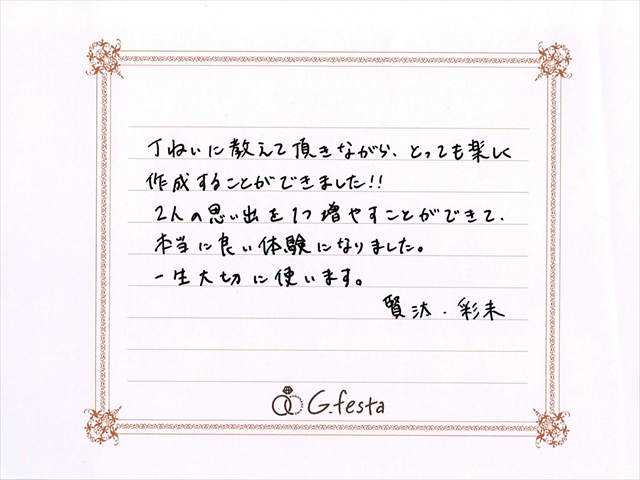 丁ねいに教えて頂きながら、とっても楽しく
作成することができました!!
2人の思い出を1つ増やすことができて、
本当に良い体験になりました。
一生大切に使います。
賢汰・彩未
G.festa